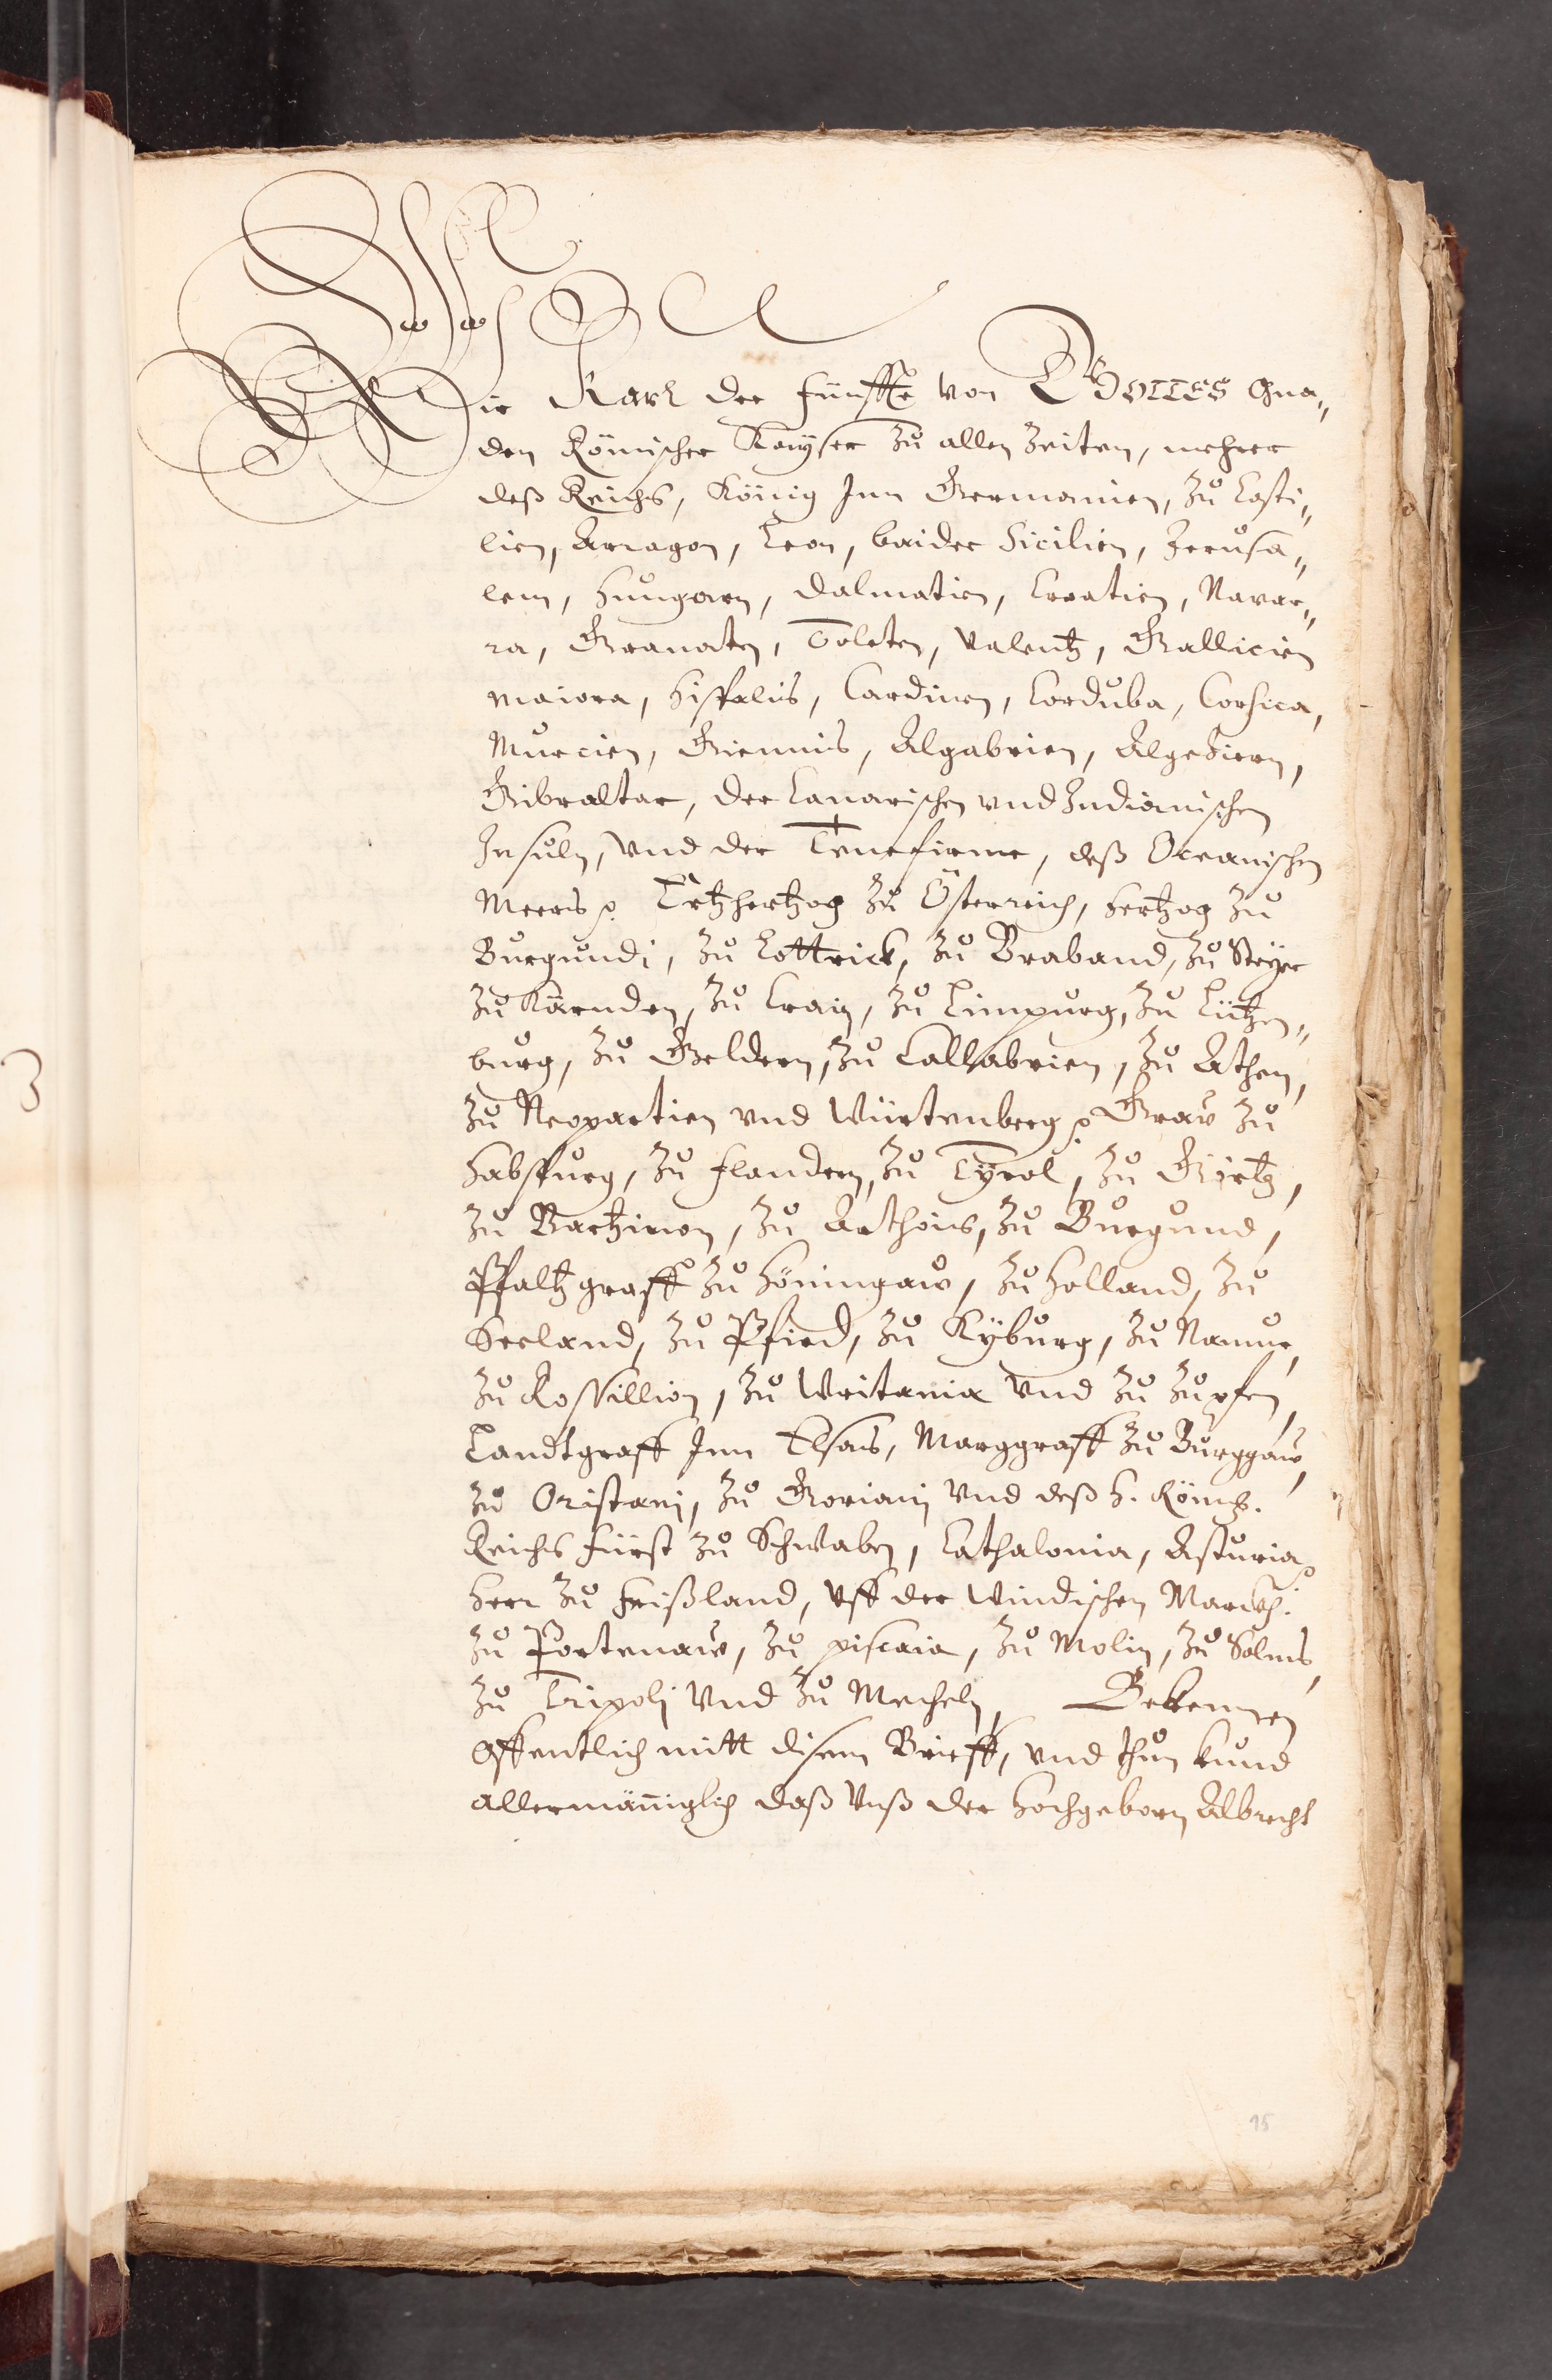 Wir Karl der fünffte von GOTTES Gna„
den Römischer Kayser zu allen Zeiten, mehrer
deß Reichs, König Inn Germanien, zu Casti„
lien, Arragon, Leon, baider Sicilien, Jerusa„
lem, Hungarn, Dalmatien, Croatien, Navar„
ra, Granaten, Toleten, Valentz, Gallicien
Maiora, Hispalis, Cardinen, Corduba, Corsica,
Murcien, Giennis, Algabrien, Algeziern,
Gibraltar, der Canarischen vnd Indianischen
Insuln, vnd der Terrefirme, deß Oceanischen
Meers p. Ertzhertzog zu Österreich, Hertzog zu
Burgundi, zu Lottrick, zu Braband, zu Steyer
zu Kärnden, zu Crain, zu Limpurg, zu Lützen„
burg, zu Geldern, zu Callabrien, zu Athen,
zu Neopartien vnd Würtenberg p Grav zu
Habspurg, zu Flandern, zu Tyrol, zu Görtz,
zu Bartzinon, zu Arthois, zu Burgund,
Pfaltzgraff zu Höningaw, zu Holland, zu
Seeland, zu Pfird, zu Kyburg, zu Namur,
zu Rossillion, zu Writania vnd zu Zupfen,
Landtgraff Inn Elsas, Marggraff zu Burggaw,
zu Oristani, zu Goriani vnd deß H. Römis.
Reichs Fürst zu Schwaben, Cathalonia, Asturia p
Herr zu Frißland, vff der Windischen Marckh.
zu Portenaw, zu piscaia, zu Molin, zu Salins,
zu Tripoli vnd zu Mecheln, Bekennen
offentlich mitt disem Brieff, vnd thun kund
allermänniglich daß Vnß der Hochgeborn Albrecht
15
3